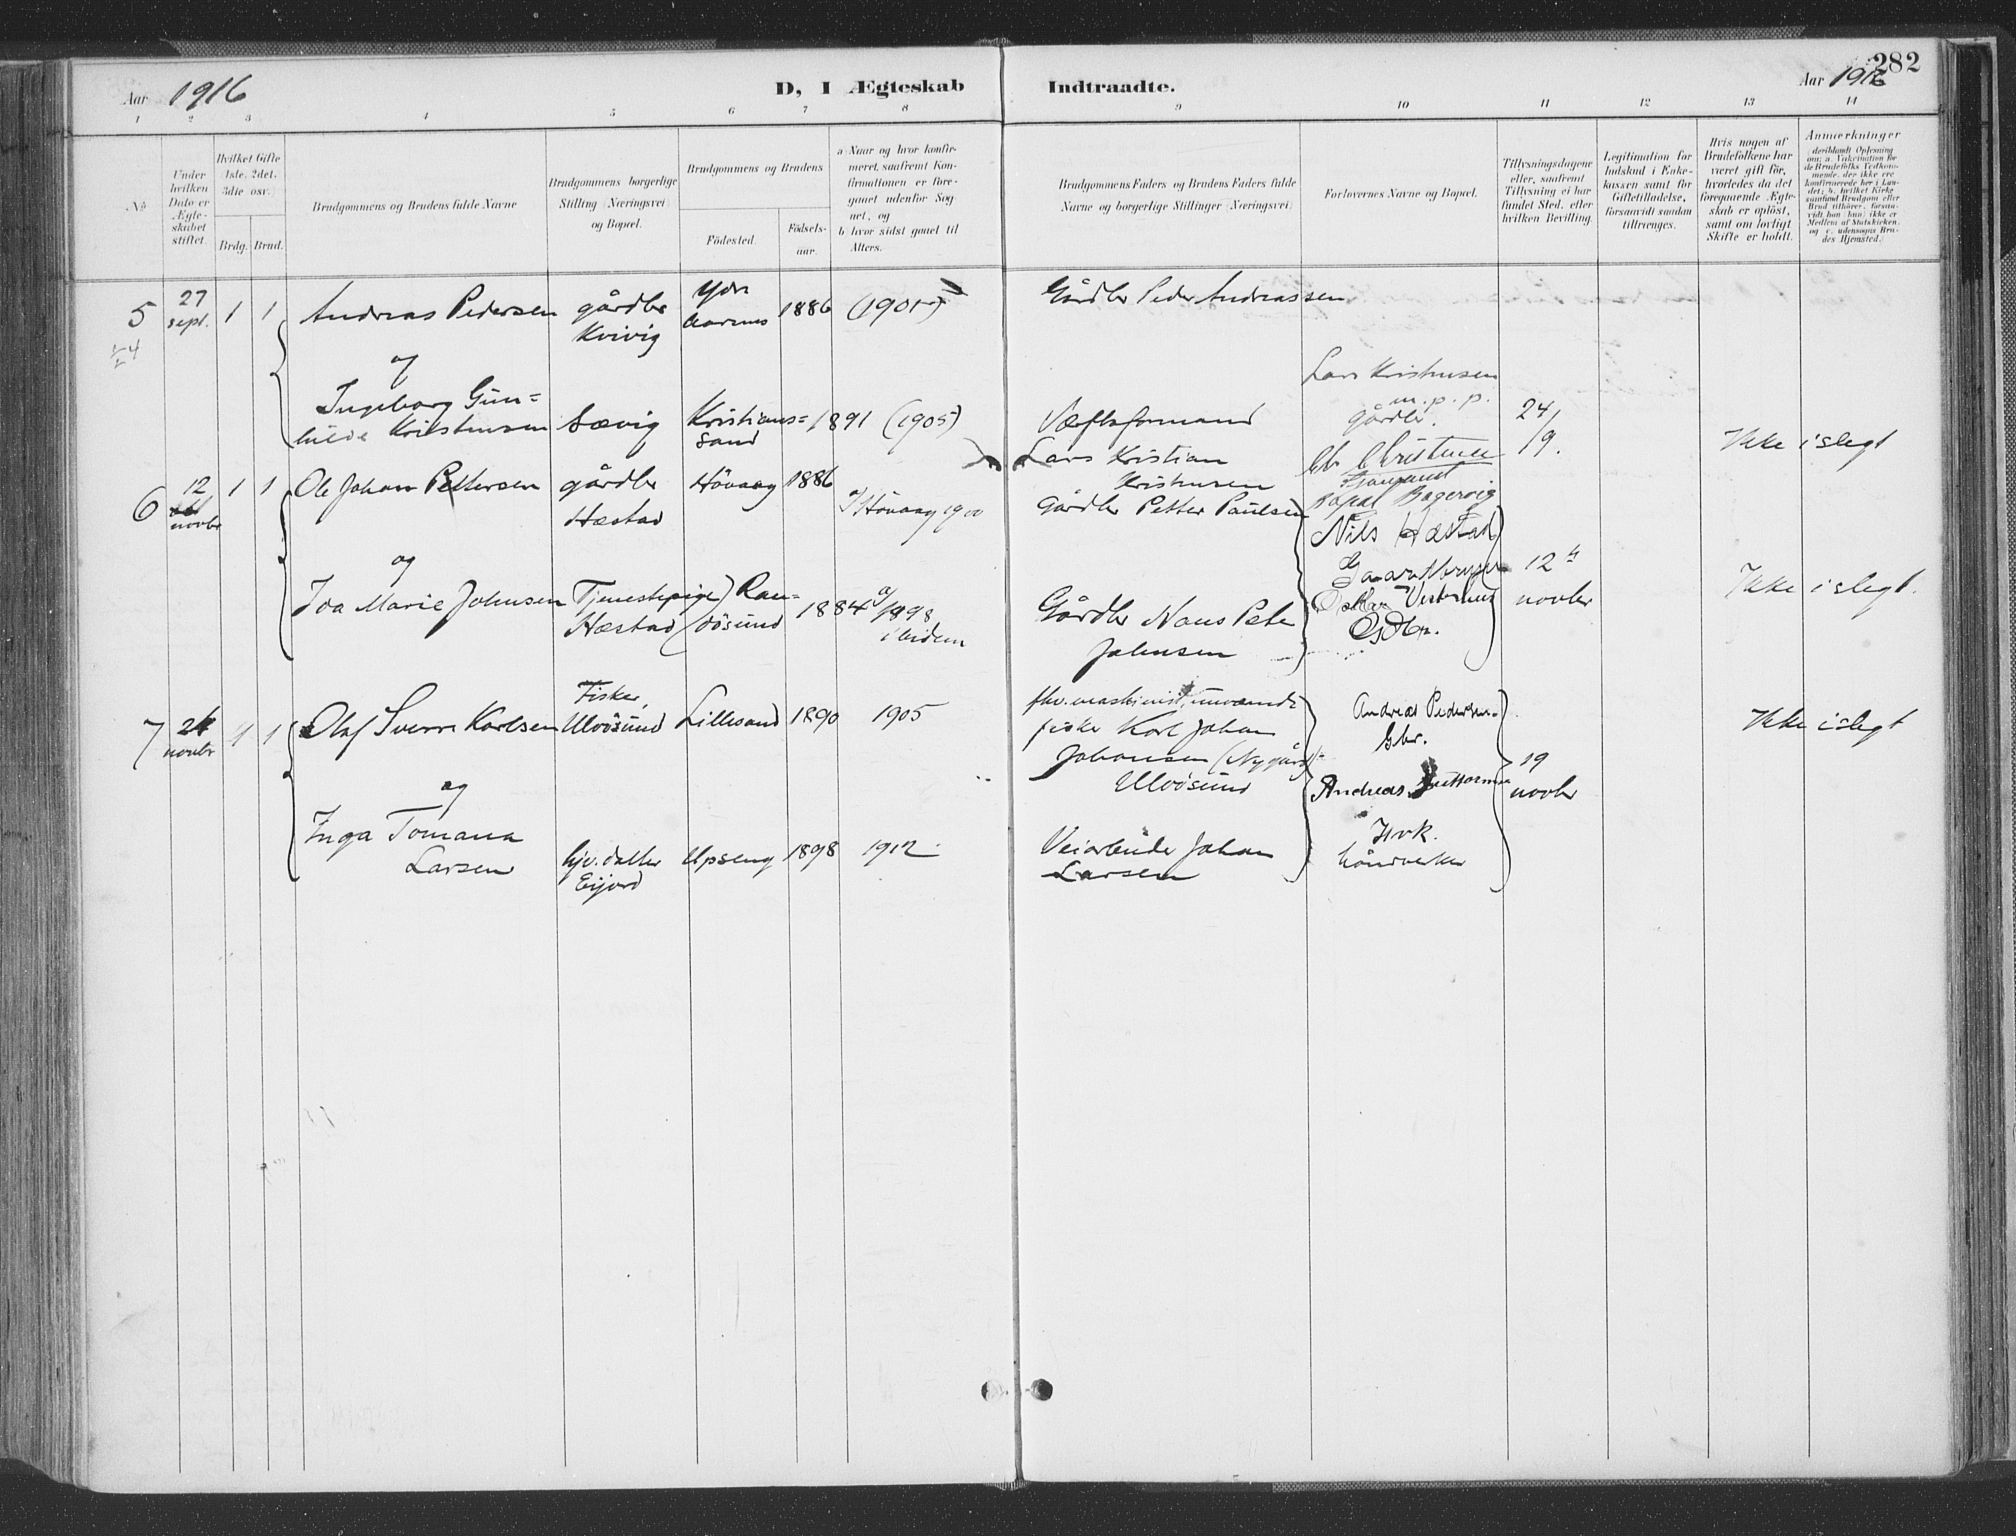 Aar 1916
D, I Ægteskab
Indtraadte.
Aar 1916
282
1 2 3 4 5 6 7 8 9 10 11 12 13 14
No
Under hvilken Dato er Ægteskabet stiftet.
Hvilket Gifte 1ste, 2det, 3die osv.
Brdg. Brud.
Brudgommens og Brudens fulde Navne
Brudgommens borgerlige Stilling (Næringsvei) og Bopæl.
Brudgommens og Brudens
Fødested.
Fødselsaar.
a Naar og hvor konfirmeret, saafremt Konfirmationen er foregaaet udenfor Sognet, og
b hvor sidst gaaet til Alters.
Brudgommens Faders og Brudens Faders fulde Navne og borgerlige Stillinger (Næringsvei)
Forlovernes Navne og Bopæl.
Tillysningsdagene eller, saafremt Tillysning ei har fundet Sted, efter hvilken Bevilling.
Legitimation for Indskud i Enkekassen samt for Giftetilladelse, forsaavidt saadan tiltrænges.
Hvis nogen af Brudefolkene har været gift før, hvorledes da det foregaaende Ægteskab er opløst, samt om lovligt Skifte er holdt.
Anmerkninger
5
27 sept.
1 1
Andreas Pedersen
gårdbr
Kvivig
1886
(1901)
Gårdbr Peder Andreassen
og
Ingeborg Gun=
hilde Kristensen
Sævig
Kristians=
sand
1891
(1905)
Værftsformand
Lars Kristian
Kristensen
Lars Kristensen
m.p.p.
gårdbr.
24/9.
Ikke i slegt
6
12
novbr
1 1
Ole Johan Pettersen
gårdbr
Hæstad
Høvaag
1886
Høvaag 1900
Gårdbr Petter Paulsen
Nils Hæstad
og
Ida Marie Johnsen
Tjenestepige
Hæstad
Ran=
døsund
1884
1898
ibidem
Gårdbr Hans Peter
Johnsen
12te
novbr
Ikke i slegt.
7
novbr
1 1
Olaf Sverre Karlsen
Fisker,
Ulvøsund
Lillesand
1890
1905
fhv. maskinist, nuværende
fisker Karl Johan
Johansen (Nygård)
Ulvøsund
Andreas Pedersen.
Gbr.
19
novbr
Ikke i slegt
og
Inga Tomana
Larsen
hjv. datter
Eijord
Upseng
1898
1912
Veiarbeider Johan
Larsen
Andreas
håndverker